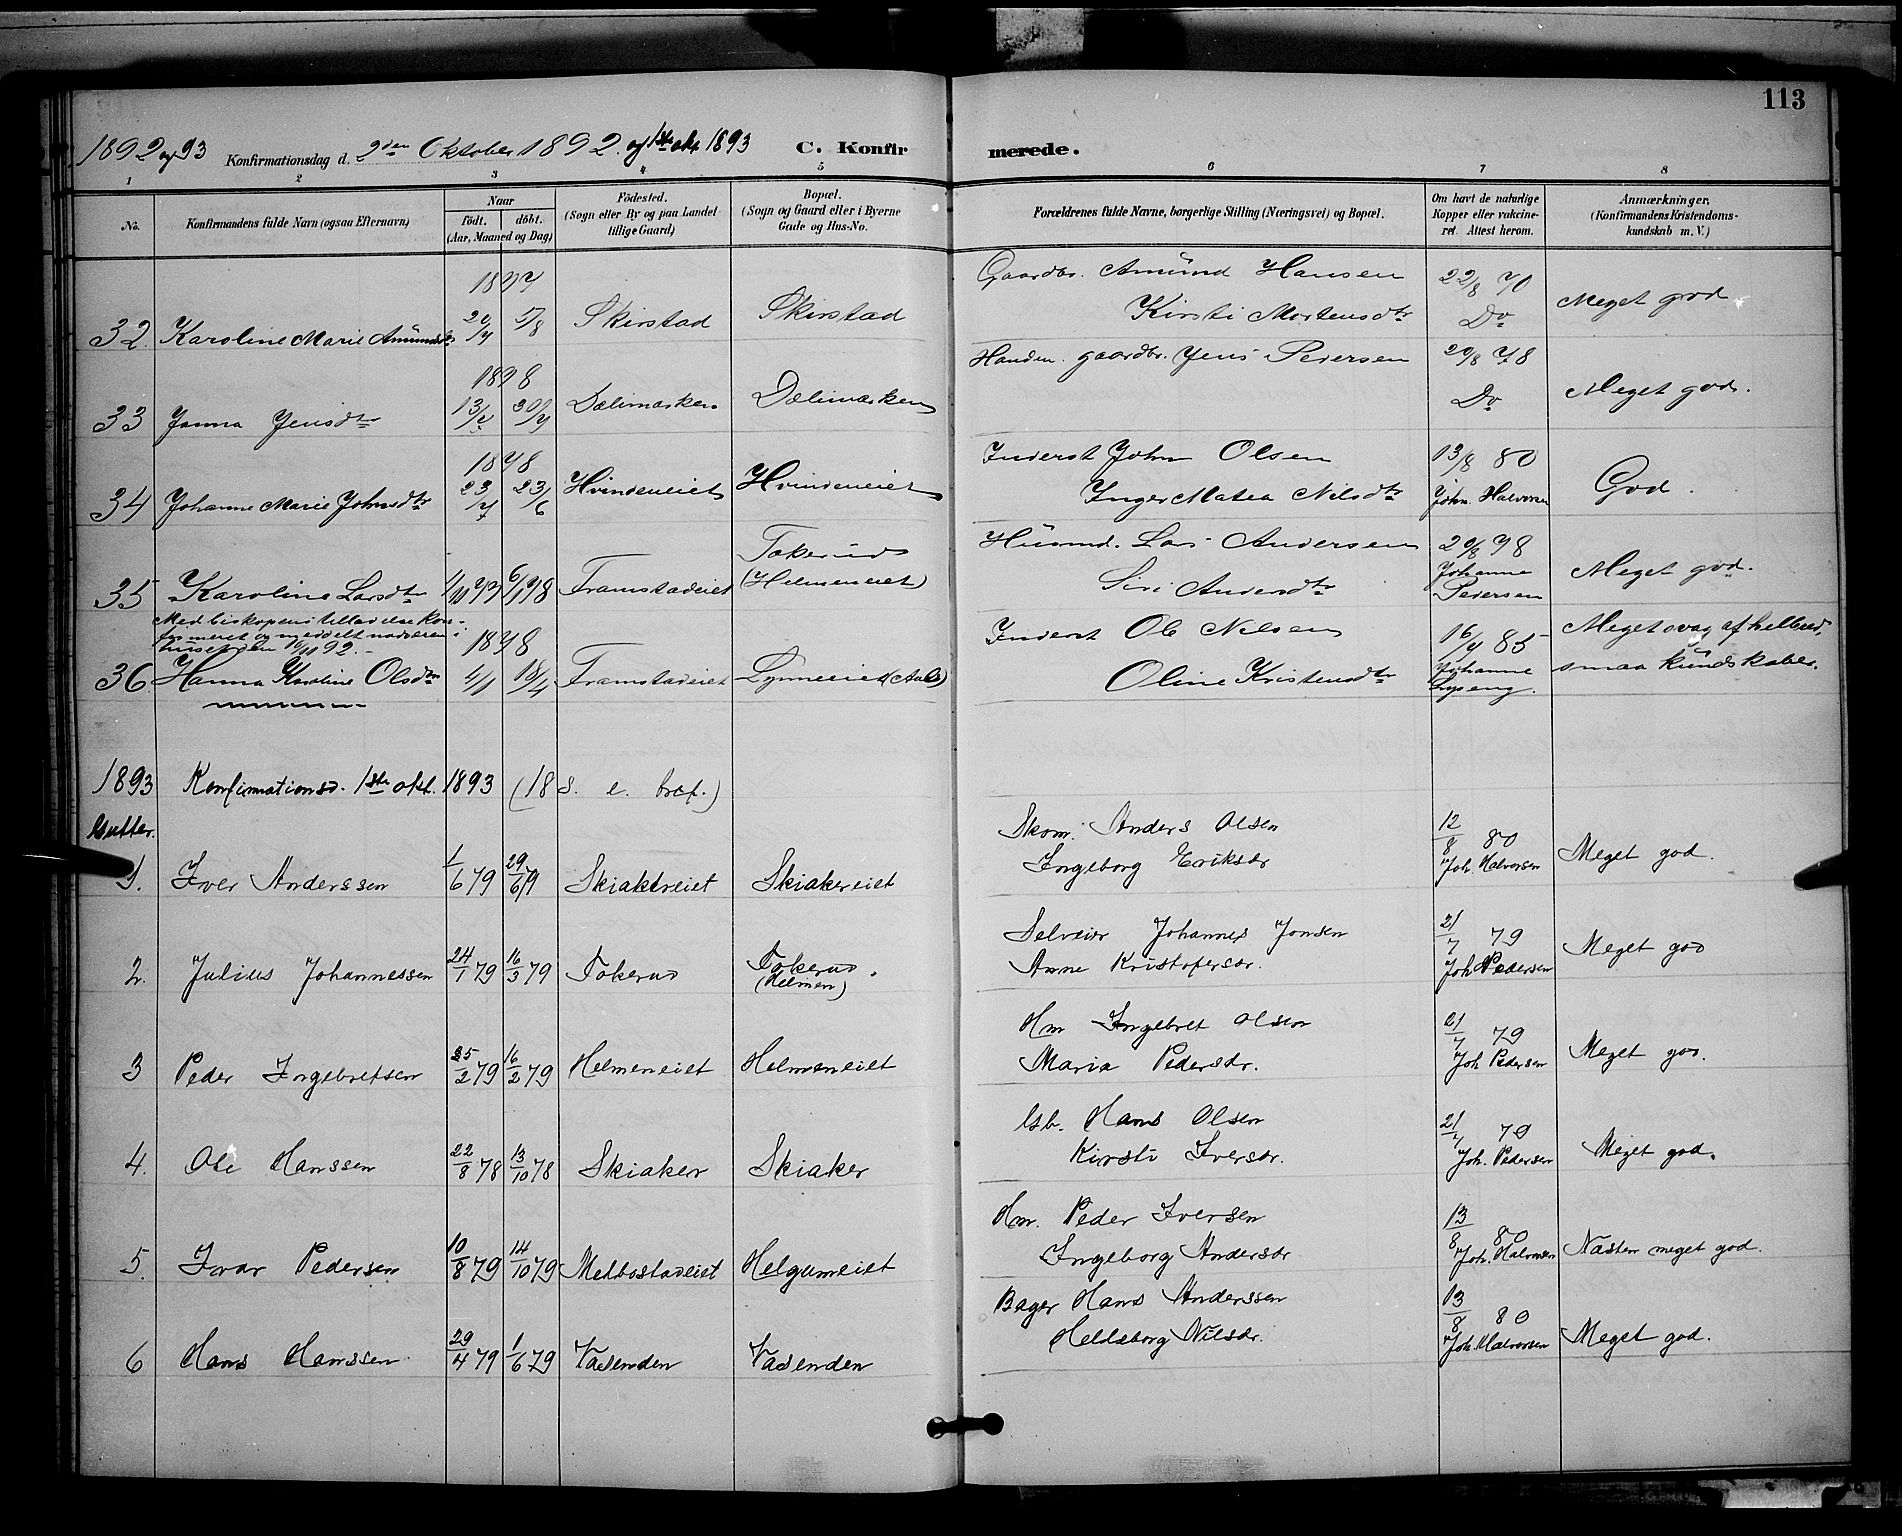 113
1892 og 93 Konfirmationsdag d. 2den Oktober 1892. og 1ste okt 1893 C. Konfirmerede.
1 2 3 4 5 6 7 8
No. Konfirmandens fulde Navn (ogsaa Efternavn) Naar födt. döbt. (Aar, Maaned og Dag) Födested. (Sogn eller By og paa Landet tillige Gaard) Bopæl. (Sogn og Gaard eller i Byerne Gade og Hus-No. Forældrenes fulde Navne, borgerlige Stilling (Næringsvei) og Bopæl. Om havt de naturlige Kopper eller vakcineret. Attest herom. Anmærkninger. (Konfirmandens Kristendomskundskab m. V.)
1877 Gaardbr. Amund Hansen 22/8 70
32. Karoline Marie Amundsdtr 20/4 5/8 Skirstad Skirstad Kirsti Mortensdtr Do Meget god
1878 gaardbr. Jens Pedersen 20/8 78
33 Janna Jensdtr Dælimarken Dælimarken Do Meget god.
1878 Inderst John Olsen 13/8 80
34 Johanne Marie Johnsdtr 23/4 23/6 Hvindeneiet Hvindeneiet Inger Matea Nilsdtr Joh. Halvorsen God.
Tokerud Husmd. Lars Andersen
35 Karoline Larsdtr Framstadeiet (Helmeneiet) Siri Andersdtr Johanne Pedersen Meget god.
Med biskopens tilladelse konfirmeret og meddelt nadveren i huset den
1878 Inderst Ole Nilsen 85 Meget svag af helbred,
36. Hanna Karoline Olsdtr 4/1 18/4 Framstadeiet Lynneeiet Oline Kristensdtr Johanne smaa kundskaber.
1893 Konfirmationsd. 1ste okt. 1893 (18 s. e. tref.)
Gutter.
Skom. Anders Olsen 12/8 80
1. Iver Anderssen 1/6 79 29/6 79 Skiakereiet Skiakereiet Ingeborg Eriksdr Joh. Halvorsen Meget god.
Selveier Johannes Jonsen 21/7 79
2. Julius Johannessen 24/1 79 16/3 79 Tokerud Tokerud (Helmen) Anne Kristofersdr. Joh. Pedersen Meget god
Hm Ingebret Olsen 21/7 79
3 Peder Ingebretsen 25/2 79 16/2 79 Helmeneiet Helmeneiet Maria Pedersdr. Joh Pedersen Meget god.
Gb. Hans Olsen 21/7 79
4. Ole Hanssen 22/8 78 13/10 78 Skiaker Skiaker Kirsti Iversdr. Joh. Pedersen Meget god.
Hm. Peder Iversen 13/8 80
5. Ivar Pedersen 10/8 79 14/10 79 Melbostadeiet Helgumeiet Ingeborg Andersdr Joh. Halvorsen Næsten meget god.
Bager Hans Anderssen 13/8 80
6 Hans Hanssen 29/4 79 1/6 79 Vasenden Vasenden Helleborg Nilsdr. Joh. Halvorsen Meget god.